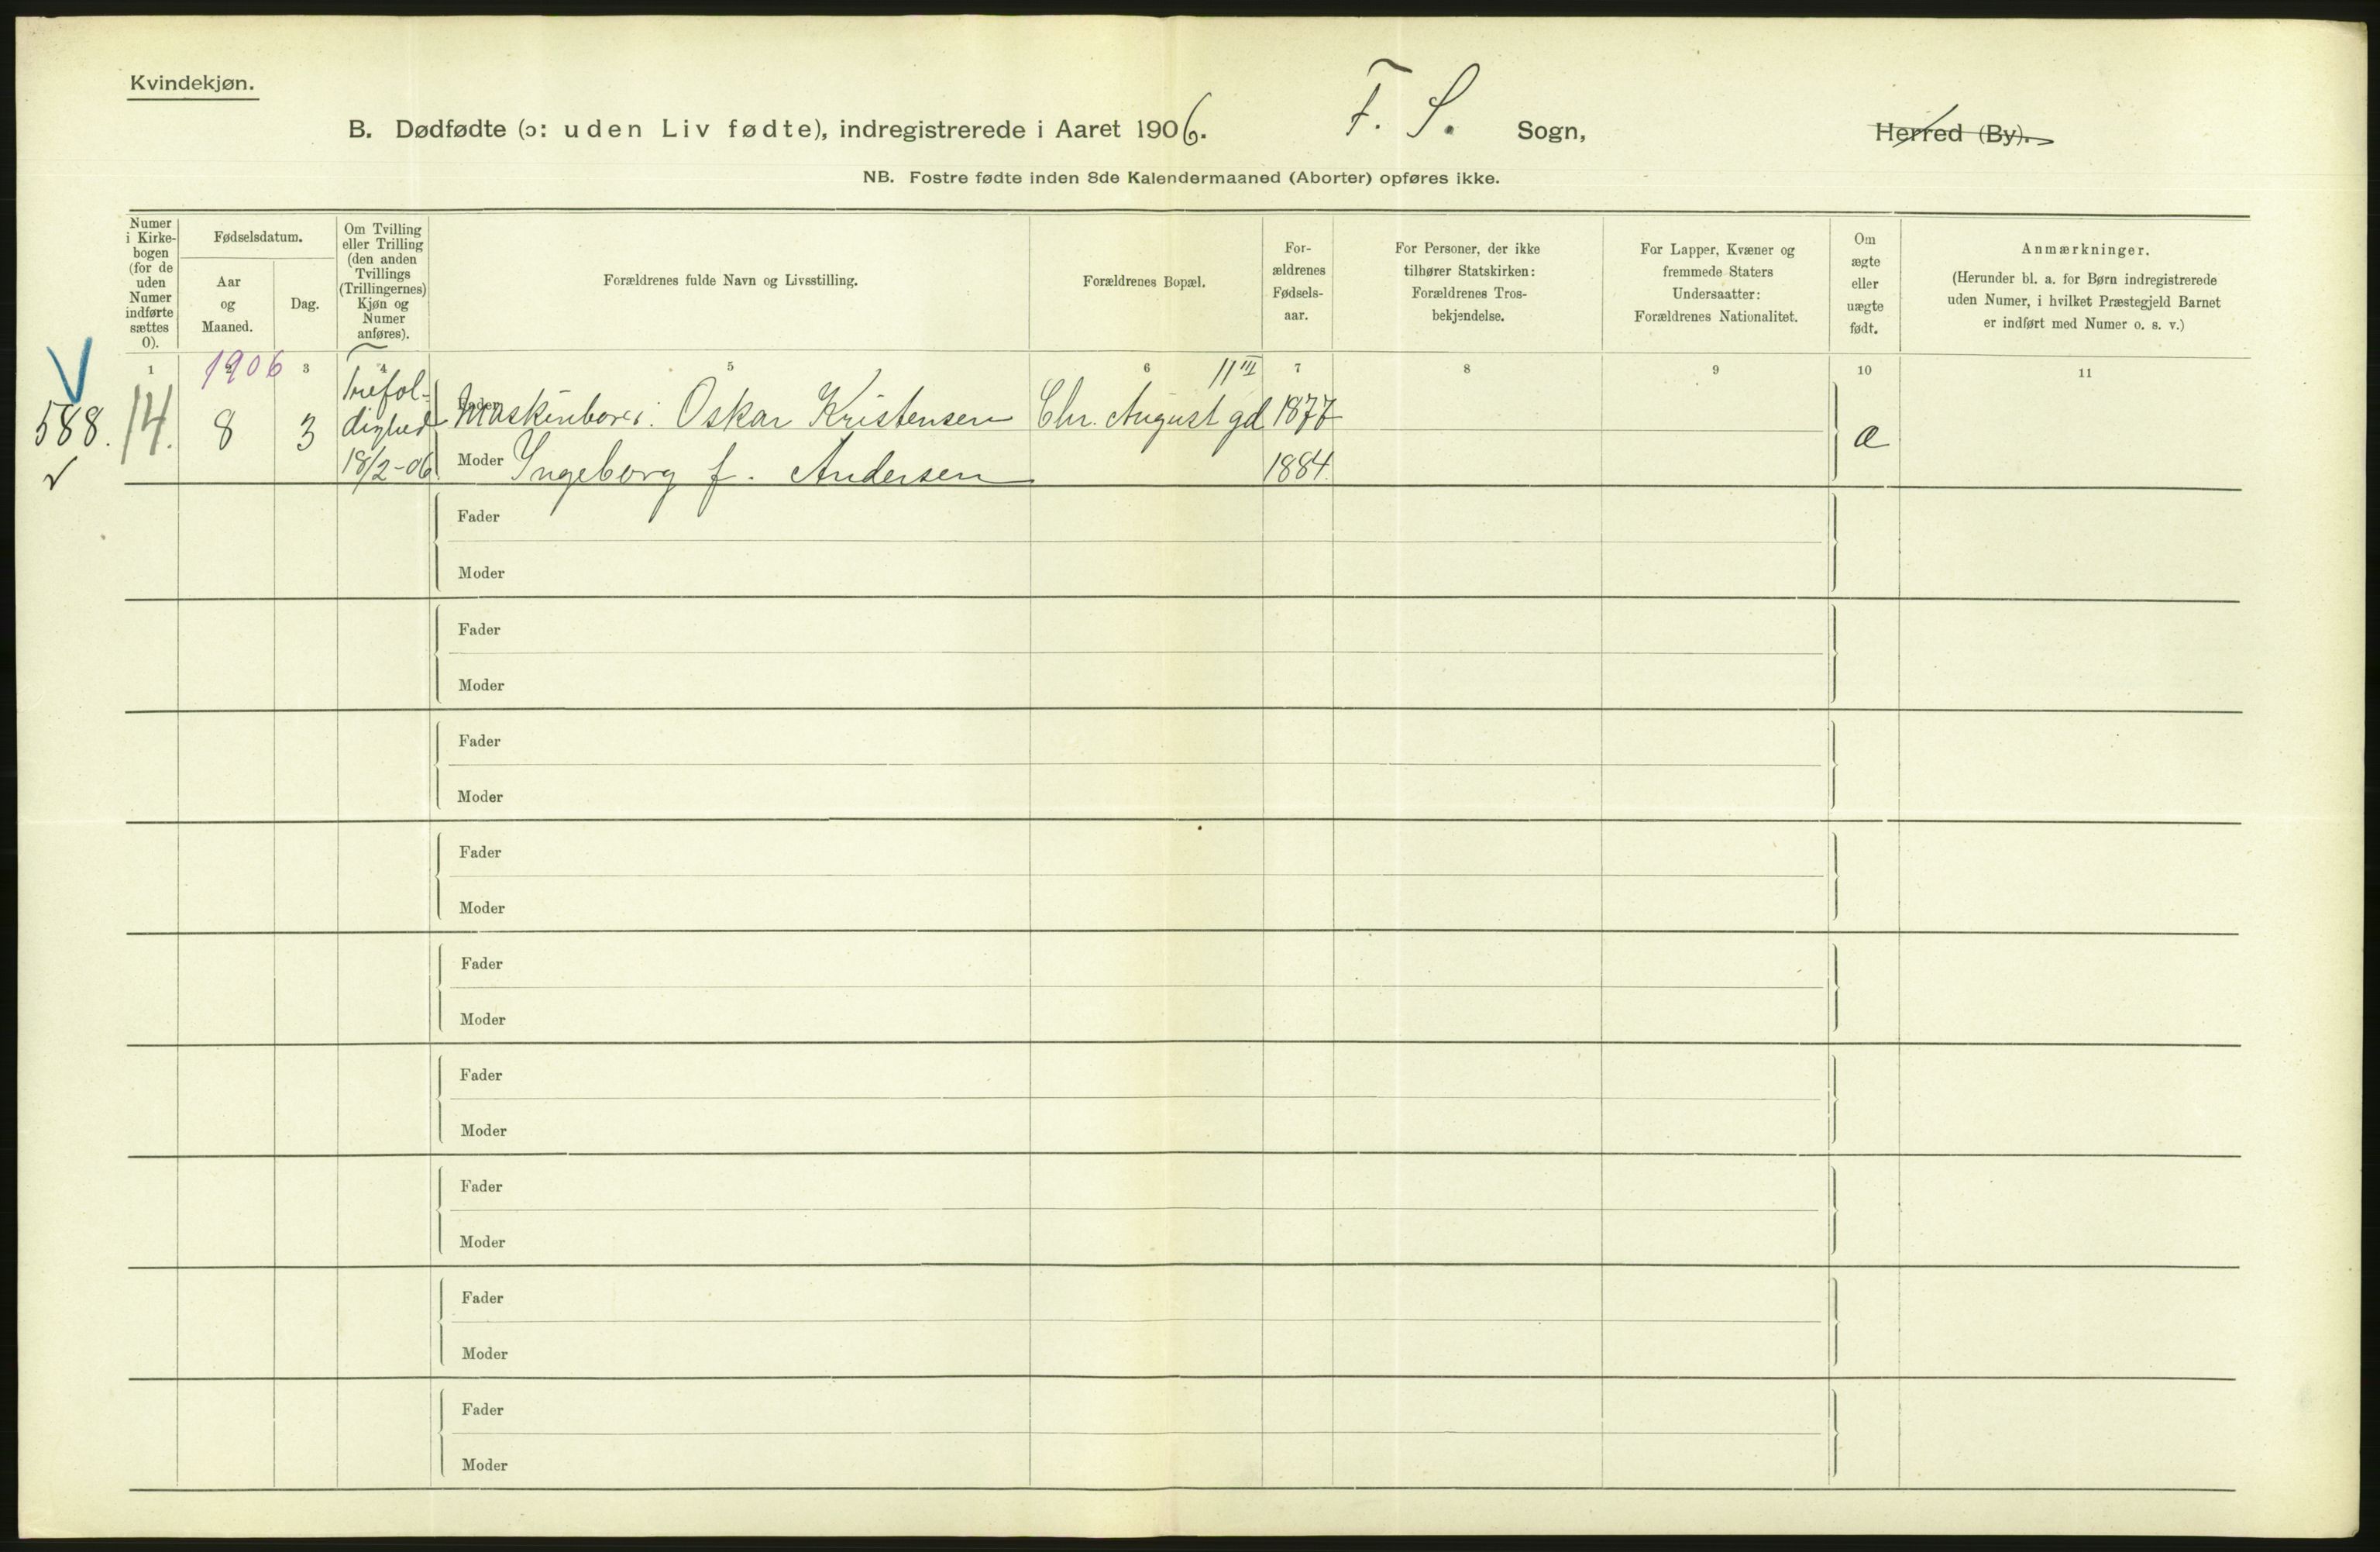 Kvindekjøn.
B. Dødfødte (ɔ: uden Liv fødte), indregistrerede i Aaret 1906. F. S. Sogn, Herred (By).
NB. Fostre fødte inden 8de Kalendermaaned (Aborter) opføres ikke.
Numer
i Kirke-
bogen
(for de
uden
Numer
indførte
sættes
0).
Fødselsdatum.
Aar
og
Maaned.
Dag.
Om Tvilling
eller Trilling
(den anden
Tvillings
(Trillingernes)
Kjøn og
Numer
anføres).
Forældrenes fulde Navn og Livsstilling.
Forældrenes Bopæl.
For-
ældrenes
Fødsels-
aar.
For Personer, der ikke
tilhører Statskirken:
Forældrenes Tros-
bekjendelse.
For Lapper, Kvæner og
fremmede Staters
Undersaatter:
Forældrenes Nationalitet.
Om
ægte
eller
uægte
født.
Anmærkninger.
(Herunder bl. a. for Børn indregistrerede
uden Numer, i hvilket Præstegjeld Barnet
er indført med Numer o. s. v.)
1 2 3 4 5 6 7 8 9 10 11
1906
V
588.
14.
8
3
Trefol-
dighed
18/2-06
Fader Oskar Kristensen Chr. August gd 11 III 1877
Moder Ingeborg f. Andersen 1884
æ
Fader
Moder
Fader
Moder
Fader
Moder
Fader
Moder
Fader
Moder
Fader
Moder
Fader
Moder
Fader
Moder
Fader
Moder